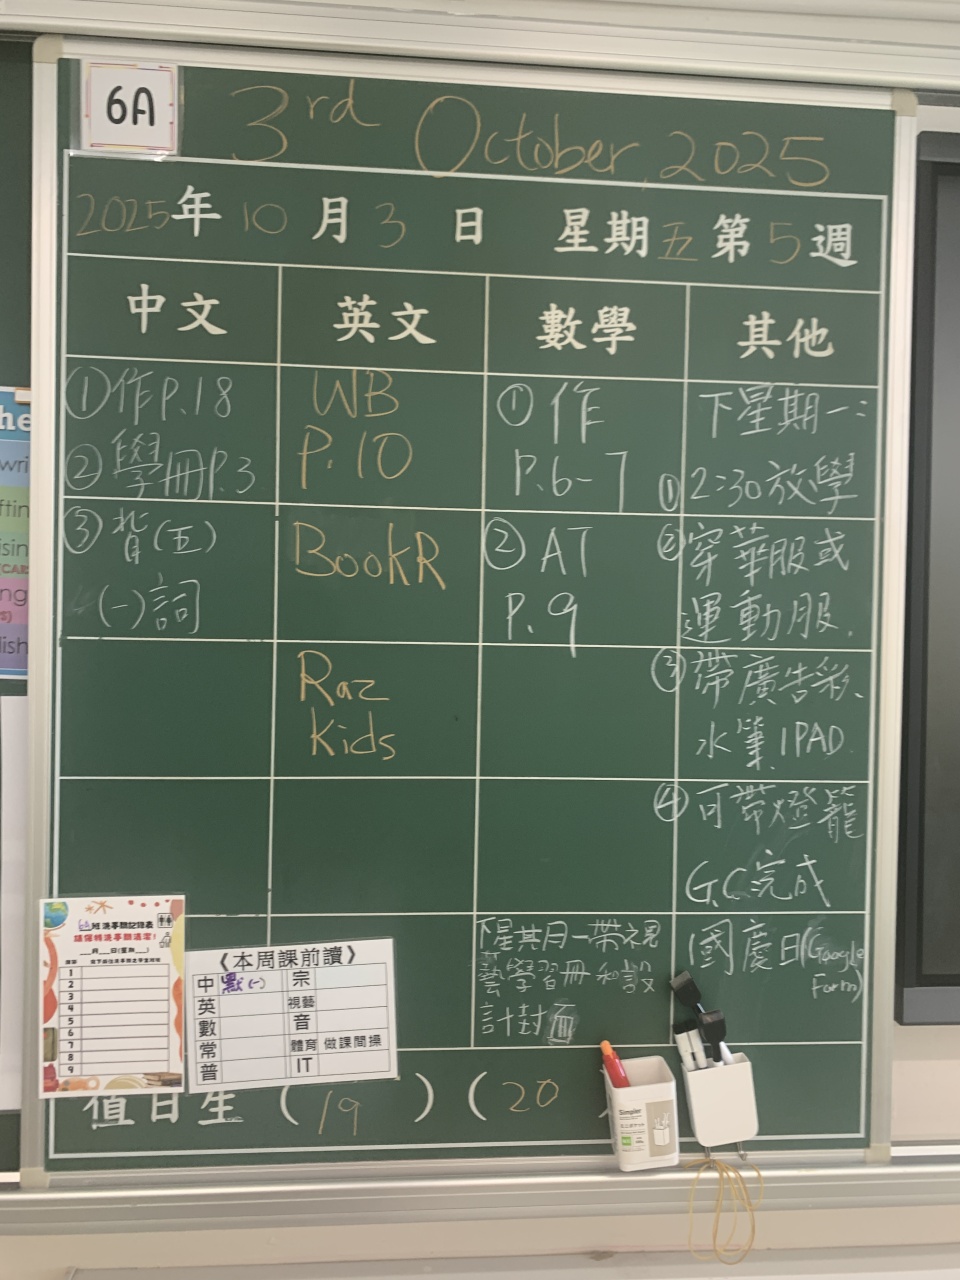 6A
3rd October, 2025
2025年10月3日 星期五第5週
中文 英文 數學 其他
①作P.18
②學冊P.3
③背(五)
(一)詞
WB
P.10
BookR
Raz
Kids
①作
P.6-7
②AT
P.9
下星期一:
①2:30放學
②穿華服或
運動服.
③帶廣告彩、
水筆、IPAD
④可帶燈籠
G.C完成
國慶日(Google
Form)
下星其月一帶視
藝學習冊和設
計封面
請保持洗手間清潔!
1
2
3
4
5
6
7
8
9
《本周課前讀》
中 默(一) 宗
英 視藝
數 音
常 體育 做課間操
普 IT
值日生 (19) (20
Simpler
he
wri
ftin
isin
ng
lish